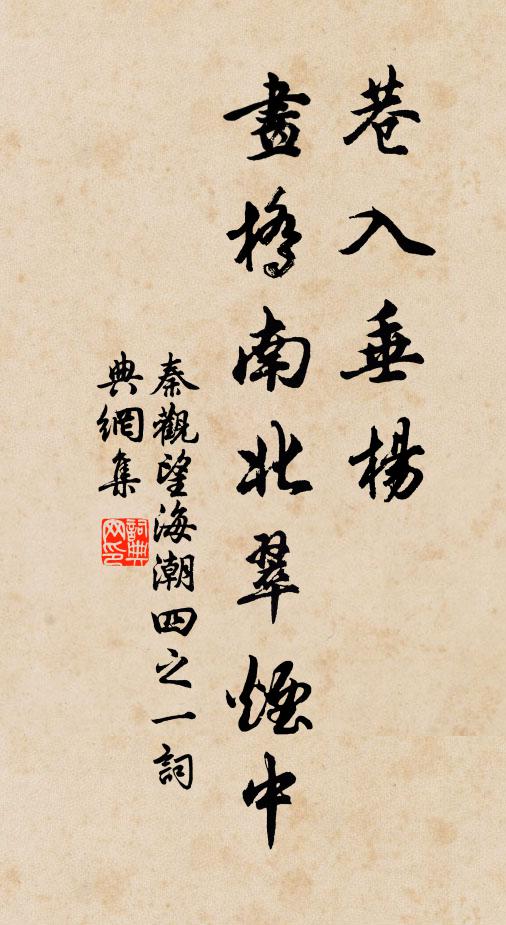 巷入垂楊
畫橋南北翠煙中
秦觀望海潮四之一詞
典網集
詞典網印